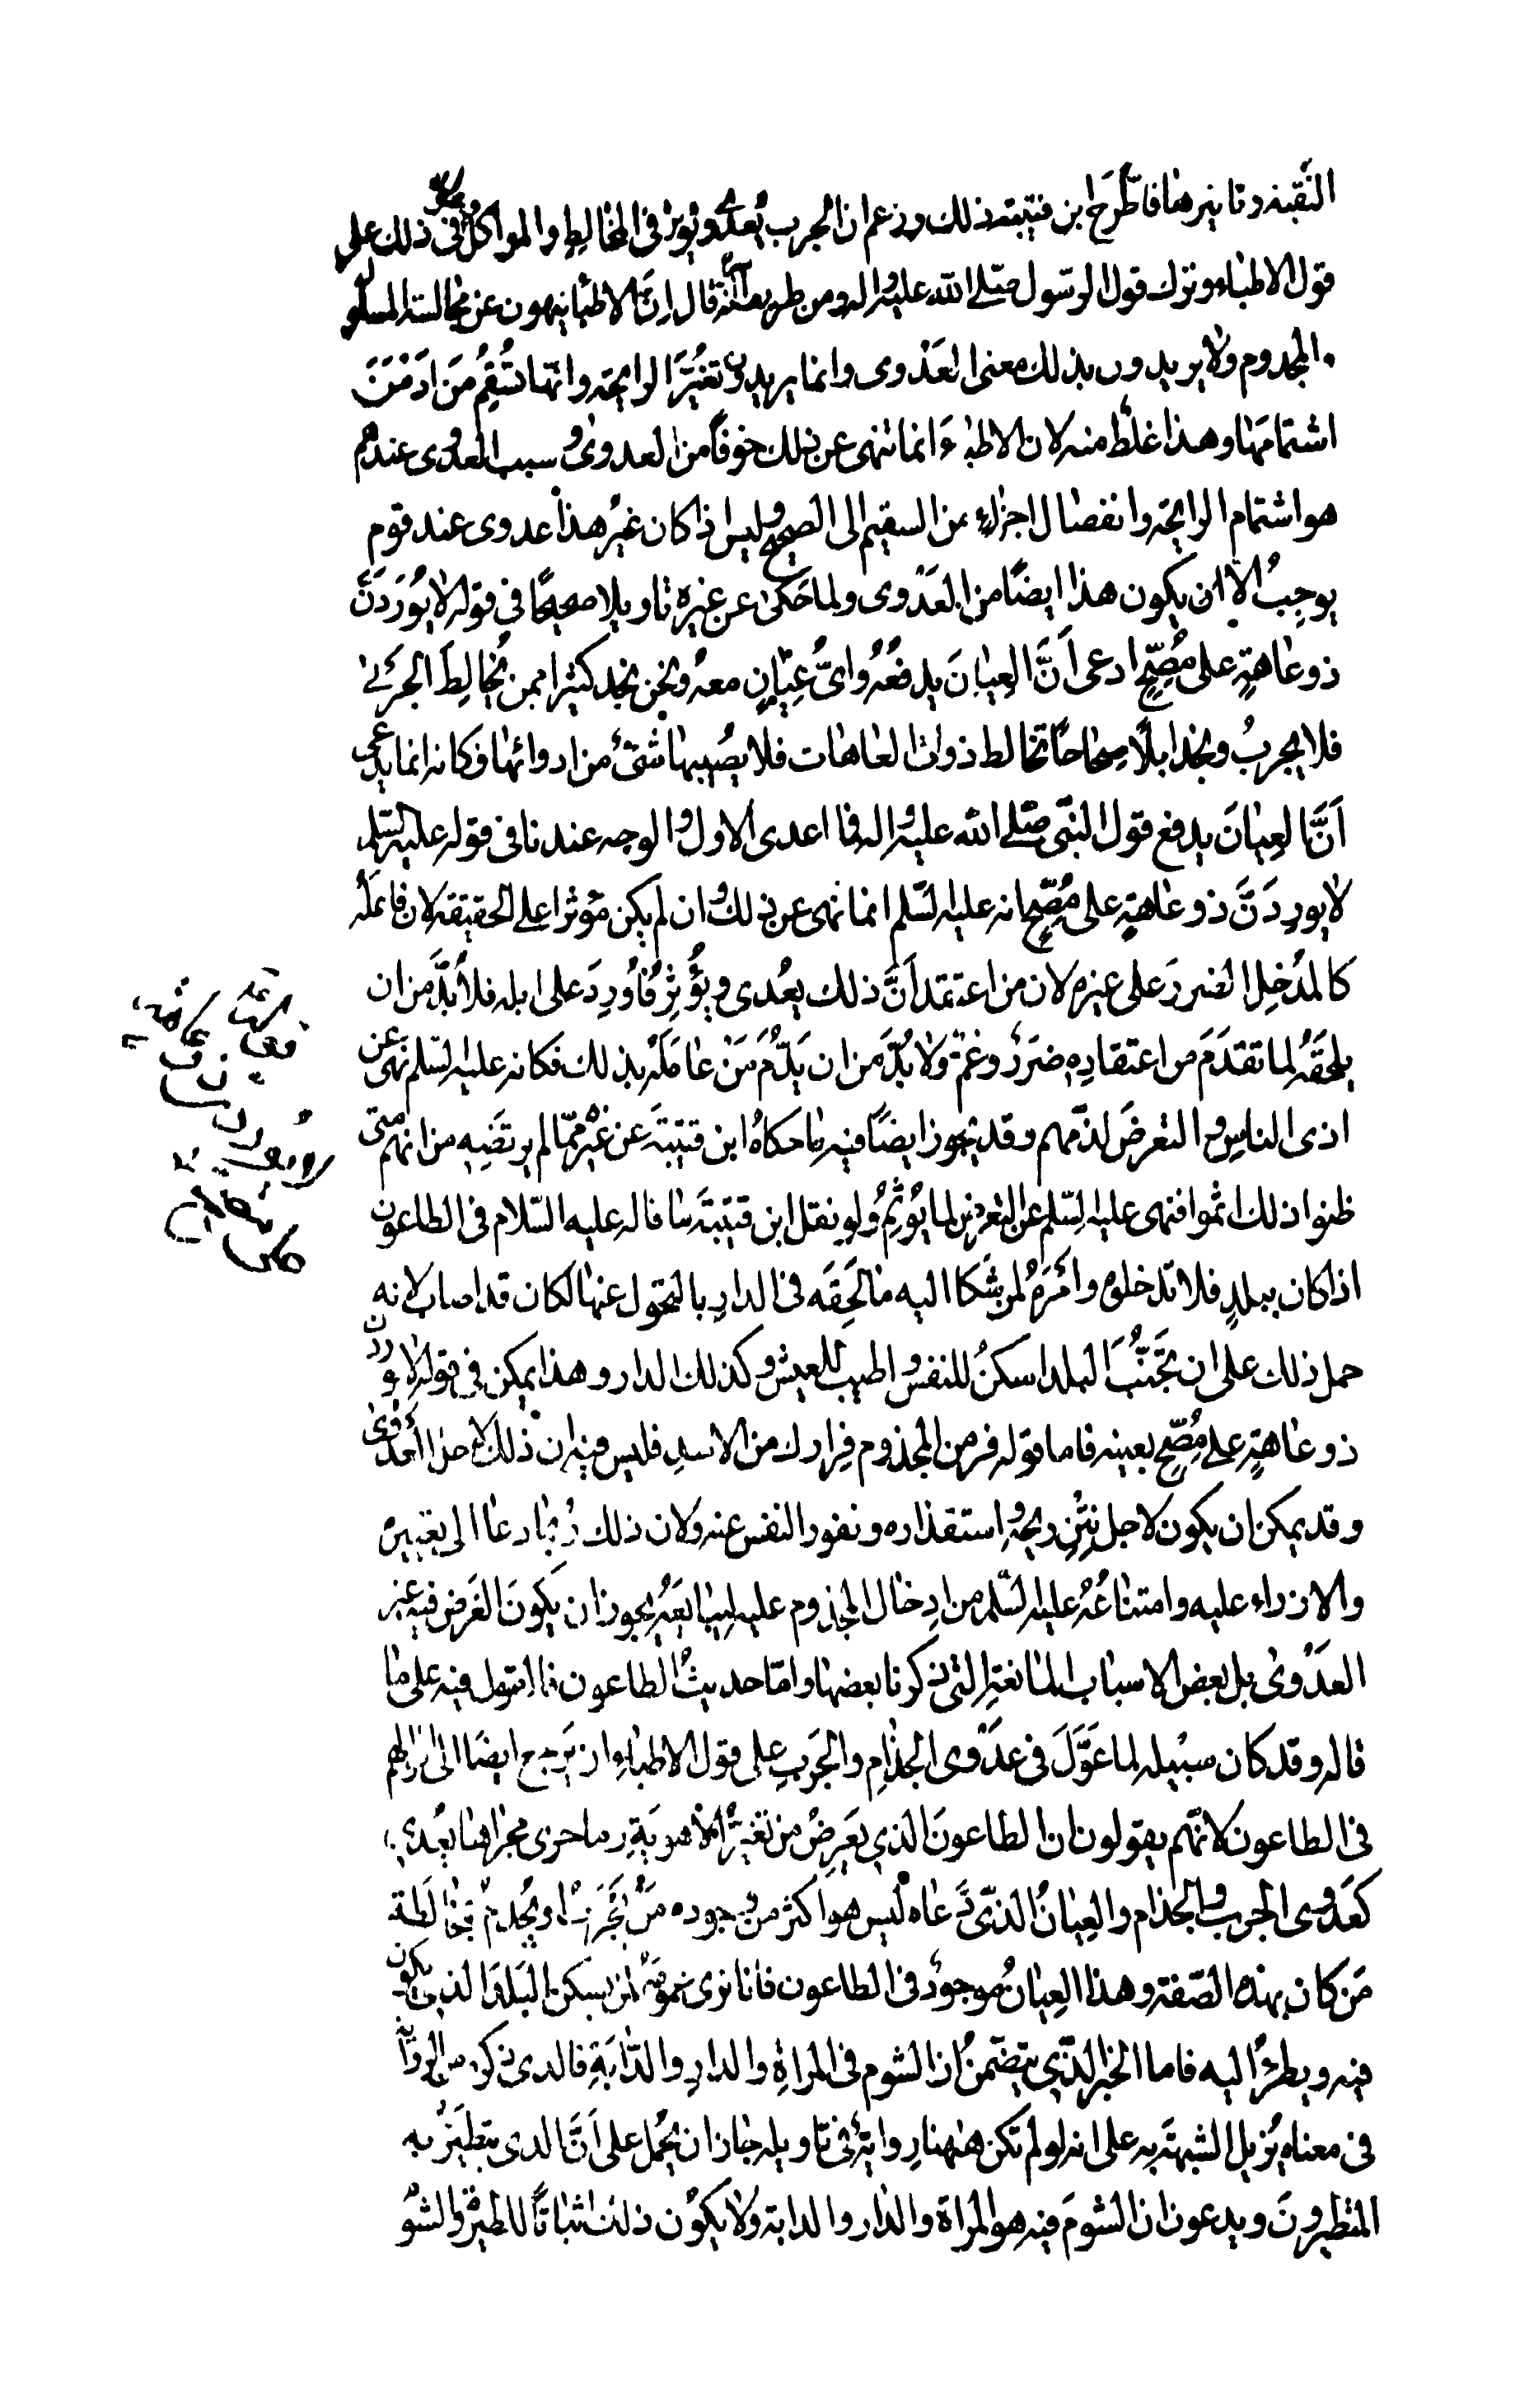 النقبه وتاثيرها فاطّرح ابن قتيبة ذلك وزعم ان الجرب يُعدى ويؤثر فى المخالط والمواكل وعوّل فى ذلك على
قول الاطباء وترك قول الرسول صلى الله عليه واله ومن طريف امره انّه قال إنّ الاطباء ينهون عن مجالسة المسلول
والمجذوم ولا يريدون بذلك معنى العَدْوى وانما يريدون تغيُّرَ الرايحة وانّها تُسقِمُ مَن ادْمَنَ
اشتمامها وهذا غلطٌ منه لان الاطباءَ انما تنهى عن ذلك خوفًا من العدوىٰ وسبب العدوى عندهم
هو اشتمام الرايحة وانفصال اجزاءٍ من السقيم الى الصحيح وليس اذا كان غيرُ هذا عدوى عند قوم
يوجِبُ الا ان يكون هذا ايضًا من العَدْوى ولما حَكىٰ عن غيره تاويلا صحيحًا فى قوله لا يُورَدَنَّ
ذو عاهةٍ على مُصِحٍّ ادعى اَنَّ العِيانَ يدفعُهُ واىُّ عِيانٍ معهُ ونحن نجد كثيرا ممن يُخالِطَ الجَربىٰ
فلا يجربُ ونجد ابلًا صِحاحًا تخالط ذوات العاهات فلا يصُيبها شئٌ من ادوائها فكانه انما يدعى
اَنَّ العِيانَ يدفع قول النبى صلى الله عليه واله فما اعدى الاول والوجه عندنا فى قوله عليه السلم
لا يورِدَنَّ ذو عاهةٍ على مُصِحٍّ انه عليه السّلم انما نهى عن ذلك وان لم يكن مؤثرا على الحقيقة لان فاعلَهُ
كالمُدْخِلِ الضررَ على غيره لان من اعتقد اَنَّ ذلك يعُدى ويُؤَثِرُ فاُورِدَ على ابله فلا بُدَّ من ان
يلحَقَهُ لما تقدَمَ من اعتقادِه ضررٌ وغمٌّ ولا بُدَّ من ان يَذُمَّ مَنْ عامَلَهُ بذلك فكانه عليه السّلم نهى عن
اذى الناسِ والتعرضَ لذمّهم وقد يجوز ايضًا فيه ما حكاهُ ابن قتيبةَ عن غيره ممّا لم يرتَضِيه من انهم متى
ظنوا ذلك اثموا فنهى عليه السّلم عن التعرض لما يُوثِمُ ولو نقل ابن قتيبةَ ما قاله عليه السّلام فى الطاعون
اذا كان ببلدٍ فلا تدخلوه وامرَهُ لمن شكا اليه ما لَحِقَه فى الدارِ بالتحول عنها لكان قد اصاب لانه
حمل ذلك على ان تَجَنُّبَ البلد اسكنُ للنفس واطيب للعيش وكذلك الدار وهذا يمكن فى قوله لا يوردن
ذو عاهةٍ على مُصِحٍّ بعينه فاما قوله فر من المجذوم فِرارك من الاسدِ فليس فيه ان ذلك لاجل العَدْوىٰ
وقد يمكن ان يكون لاجل نَتْنِ ريحه واستقذاره ونفور النفس عنه ولان ذلك رُبّما دعا الى تعييره
والازراء عليه وامتناعُهُ عليه السّلم من ادِخال المجذوم عليه لِيبايعَهُ يجوز ان يكونَ الغَرضُ فيه غير
العَدْوىٰ بل بعض الاسباب المانغةِ التى ذكرنا بعضها وامّا حديثُ الطاعون فالقول فيه على ما
قاله وقد كان سبيله لما عَوَّلَ فى عَدْوى الجُذامِ والجَرَبِ على قول الاطباءِ ان يَرجع ايضًا الى اقوالهم
فى الطاعون لانّهم يقولون ان الطاعونَ الذى يعَرِضُ من تغيُّرِ الاهويةِ وما جرى مجراها يعُدى
كعَدْوى الجرب والجذام والعِيانُ الذّى دّعاه ليس هو اكثر من وجوده مَنْ يَجْرَبُ او يُجذَمُ لمخالَطة
مَن كان بهذه الصّفة وهذا العِيانُ موجودٌ فى الطاعون فانا نرى عمومَهُ لمن يسكن البَلَدَ الذى يكون
فيه ويطرُأ اليه فاما الخبر الذّى يتضمّنُ ان الشوم فى المراةِ والدارِ والدّابةِ فالذى ذكره من الرواية
فى معناه يُزيل الشبهةَ به على انه لو لم تكن هٰهنا روايةٌ فى تاويله جاز ان يُحمل على اَنَّ الذى يتطيّرُ به
المتطيرونَ ويدعون ان الشومَ فيه هو المراة والدار والدابة ولا يكوُن ذلك اثباتًا للطيرة والشوم